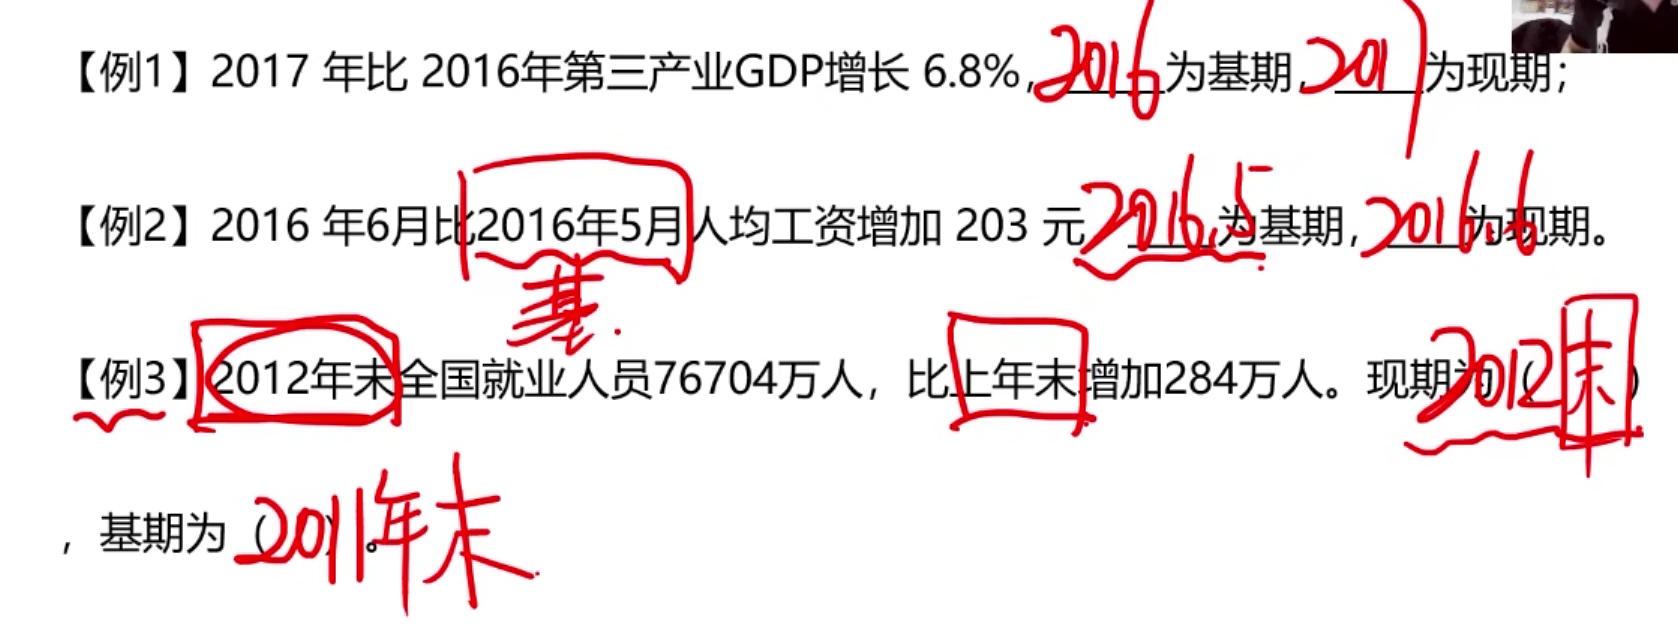 【例1】2017 年比 2016年第三产业GDP增长 6.8%，2016为基期，2017为现期；
【例2】2016 年6月比2016年5月人均工资增加 203 元 2016.5为基期，2016.6为现期。
基.
【例3】2012年末全国就业人员76704万人，比上年末增加284万人。现期为（2012末）
，基期为（2011年末）。